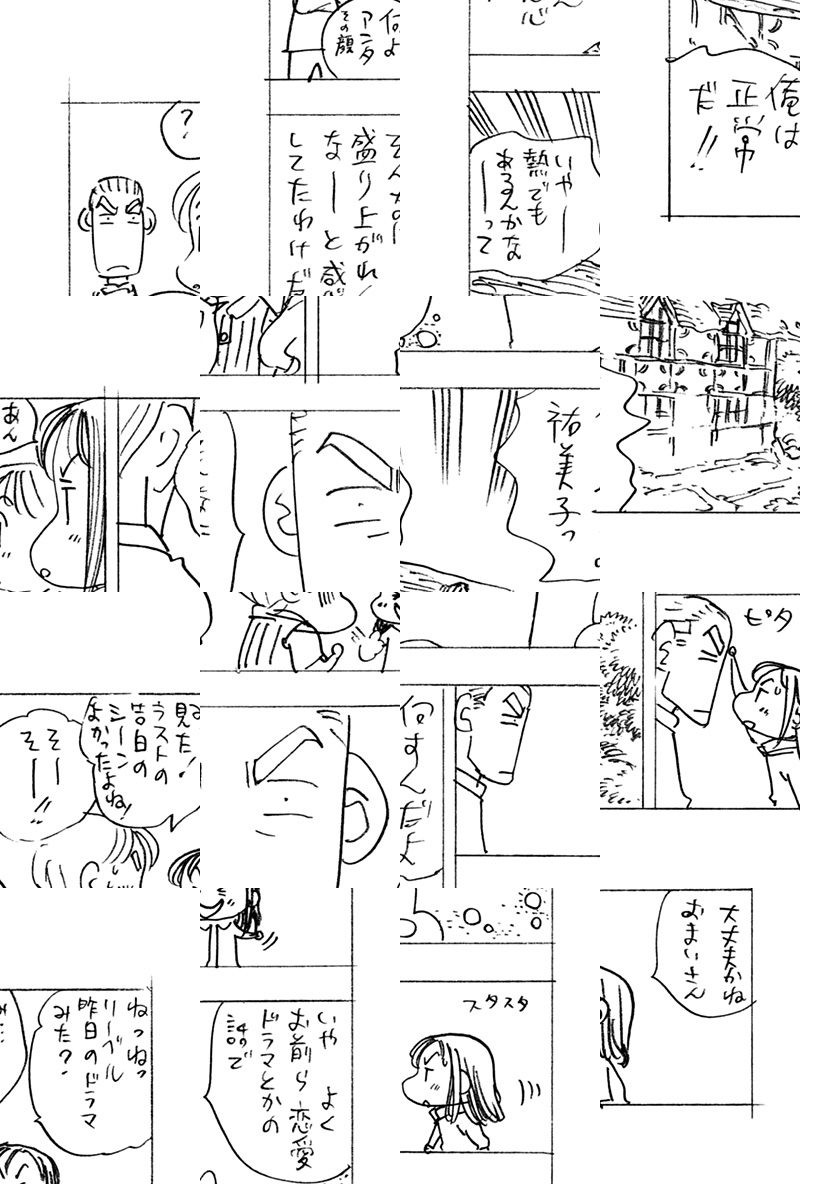 ねっねっ
リーベル
昨日のドラマ
みた?
見た!
ラストの
告白の
シーン
よかったよね!
そー
そー!!
あん
?
何よ
アンタ
その顔
いや よく
お前ら恋愛
ドラマとかの
話で
盛り上がれ
なーと感
してたわけだ
心
スタスタ
何すんだよ
祐美子っ
ピタ
いやー
熱でも
あるんかな
ーって
大丈夫かね
おまいさん
俺は
正常
だ!!